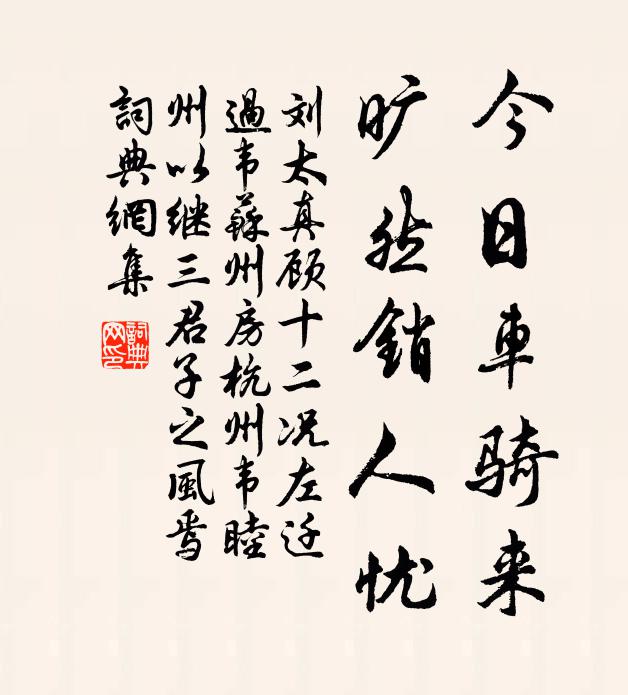 今日車骑来
旷然銷人忧
刘太真顾十二况左迁
過韦蘇州房杭州韦睦
州以继三君子之風焉
詞典網集
詞典網印